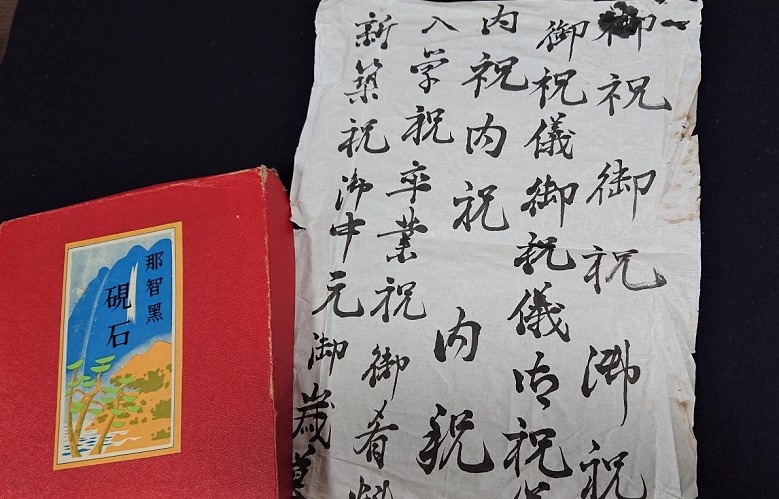 御祝御祝御祝
御祝儀御祝儀御祝
内祝内祝内祝
入学祝卒業祝御肴料
新築祝御中元御歳暮
那智黑
硯石